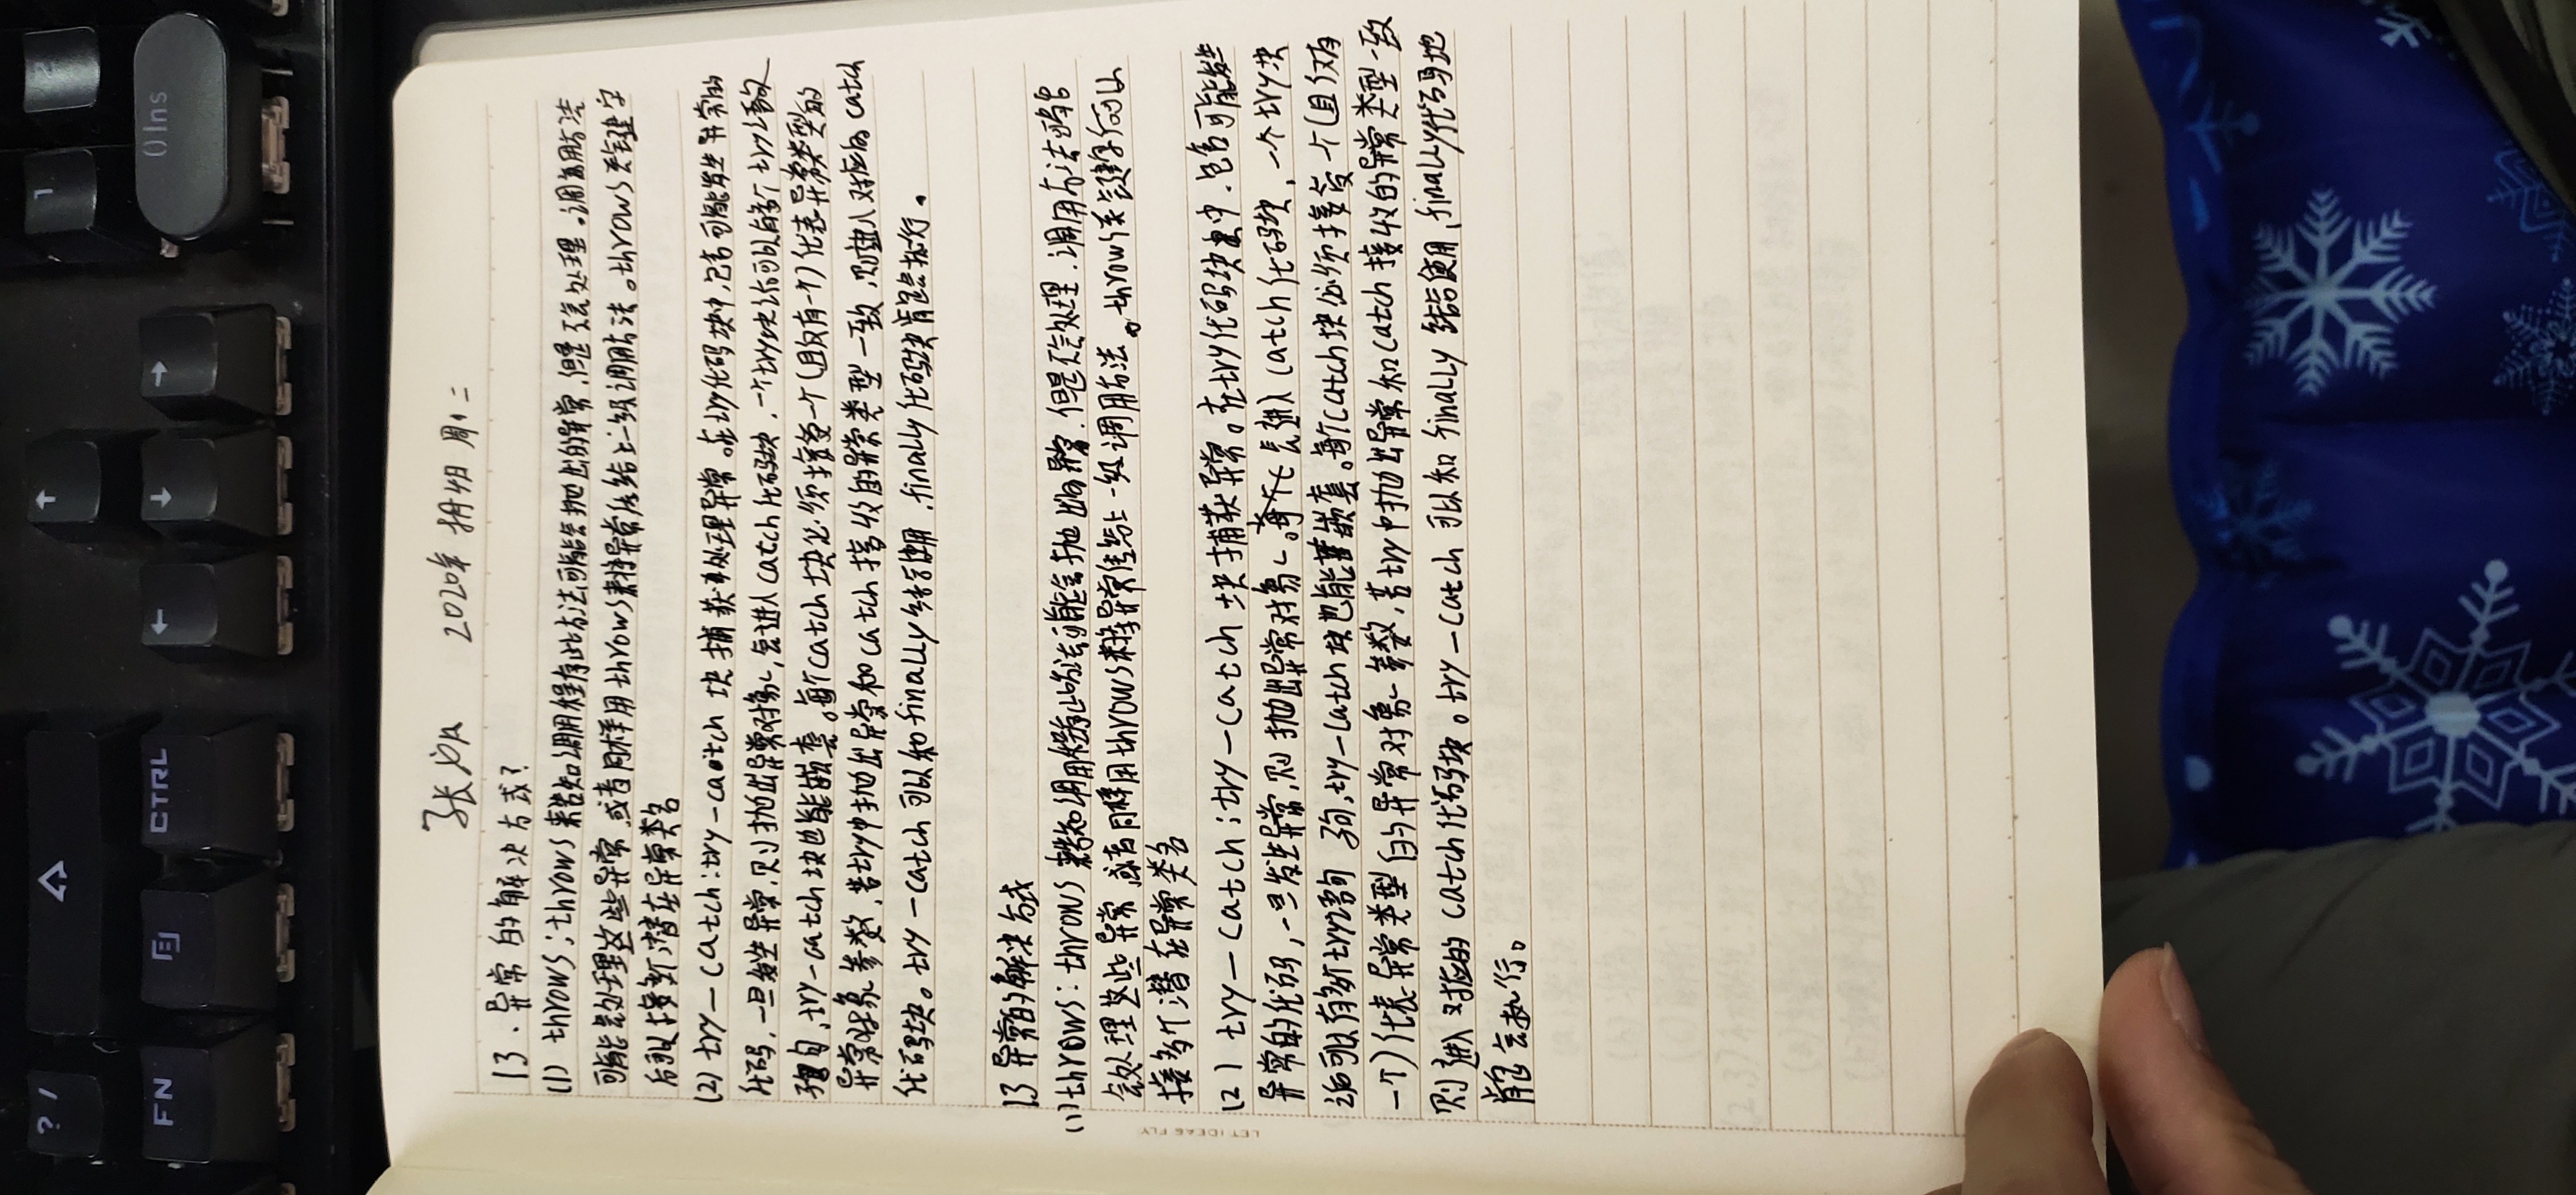 ? /
1
2
FN
CTRL
0 Ins
张 2020年 月4日 周二
13.异常的解决方式?
(1) throws:throws来告知调用程序此方法可能会抛出的异常,但是不会处理。调用方法
可能会处理这些异常,或者同样用throws来将异常传给上一级调用方法。throws关键字
后可以接多个潜在异常类名
(2) try-catch:try-catch 块捕获并处理异常。在try代码块中,包含可能发生异常的
代码,一旦发生异常,则抛出异常对象,会进入catch代码块,一个try块之后可以有多个try语句
子句,try-catch块也能嵌套。每个catch块必须接受一个(且仅有一个)代表异常类型的
异常对象参数,若try中抛出异常和catch接收的异常类型一致,则进入对应的catch
代码块。try-catch可以和finally结合使用,finally代码块肯定会执行。
13 异常的解决方式
(1)throws:throws来告知调用程序此方法可能会抛出的异常,但是不会处理,调用方法可能
会处理这些异常,或者同样用throws来将异常传给上一级调用方法。throws关键字后可以
接多个潜在异常类名
(2) try-catch:try-catch 块捕获异常。在try代码块中,包含可能发生
异常的代码,一旦发生异常,则抛出异常对象。会进入catch代码块,一个try块
之后可以有多个try语句 子句,try-catch块也能嵌套。每个catch块必须接受一个(且仅有
一个)代表异常类型的异常对象参数,若try中抛出异常和catch接收的异常类型一致
则进入对应的catch代码块。try-catch可以和finally结合使用,finally代码块
肯定会执行。
LET IDEAS FLY